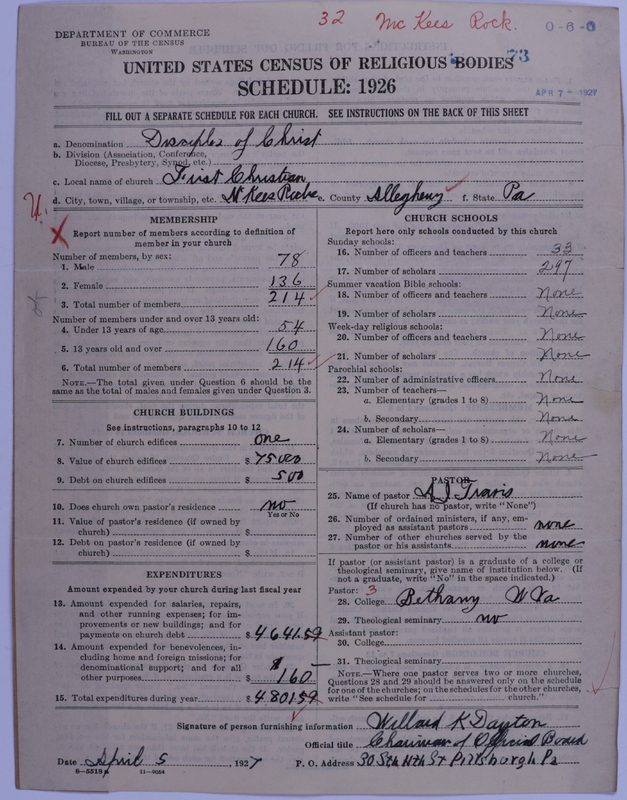 32 McKees Rock.
0-6-0
DEPARTMENT OF COMMERCE
BUREAU OF THE CENSUS
WASHINGTON
73
UNITED STATES CENSUS OF RELIGIOUS BODIES
SCHEDULE: 1926
APR 7 - 1927
FILL OUT A SEPARATE SCHEDULE FOR EACH CHURCH. SEE INSTRUCTIONS ON THE BACK OF THIS SHEET
a. Denomination Disciples of Christ
b. Division (Association, Conference,
Diocese, Presbytery, Synod, etc.)
c. Local name of church First Christian
d. City, town, village, or township, etc. McKees Rocks e. County Allegheny f. State Pa
MEMBERSHIP
Report number of members according to definition of
member in your church
Number of members, by sex:
1. Male 78
2. Female 136
3. Total number of members 214
Number of members under and over 13 years old:
4. Under 13 years of age 54
5. 13 years old and over 160
6. Total number of members 214
NOTE.—The total given under Question 6 should be
same as the total of males and females given under Question 3.
CHURCH BUILDINGS
See instructions, paragraphs 10 to 12
7. Number of church edifices one
8. Value of church edifices $ 75000
9. Debt on church edifices $ 500
10. Does church own pastor's residence no
Yes or No
11. Value of pastor's residence (if owned by
church) $
12. Debt on pastor's residence (if owned by
church) $
EXPENDITURES
Amount expended by your church during last fiscal year
13. Amount expended for salaries, repairs,
and other running expenses; for im-
provements or new buildings; and for
payments on church debt $ 4641.59
14. Amount expended for benevolences, in-
cluding home and foreign missions; for
denominational support; and for all
other purposes $ 160
15. Total expenditures during year $ 4801.59
CHURCH SCHOOLS
Report here only schools conducted by this church
Sunday schools:
16. Number of officers and teachers 33
17. Number of scholars 297
Summer vacation Bible schools:
18. Number of officers and teachers None
19. Number of scholars None
Week-day religious schools:
20. Number of officers and teachers None
21. Number of scholars None
Parochial schools:
22. Number of administrative officers None
23. Number of teachers—
a. Elementary (grades 1 to 8) None
b. Secondary None
24. Number of scholars—
a. Elementary (grades 1 to 8) None
b. Secondary None
PASTOR
25. Name of pastor Travis
(If church has no pastor, write "None")
26. Number of ordained ministers, if any, em-
ployed as assistant pastors none
27. Number of other churches served by the
pastor or his assistants none
If pastor (or assistant pastor) is a graduate of a college or
theological seminary, give name of institution below. (If
not a graduate, write "No" in the space indicated.)
Pastor: 3
28. College Bethany W Va
29. Theological seminary no
Assistant pastor:
30. College
31. Theological seminary
NOTE.—Where one pastor serves two or more churches,
Questions 28 and 29 should be answered only on the schedule
for one of the churches; on the schedules for the other churches,
write "See schedule for church."
Signature of person furnishing information Willard K Dayton
Official title Chairman of Official Board
Date April 5, 1927 P. O. Address St Pittsburgh Pa
8-5518a 11-9054